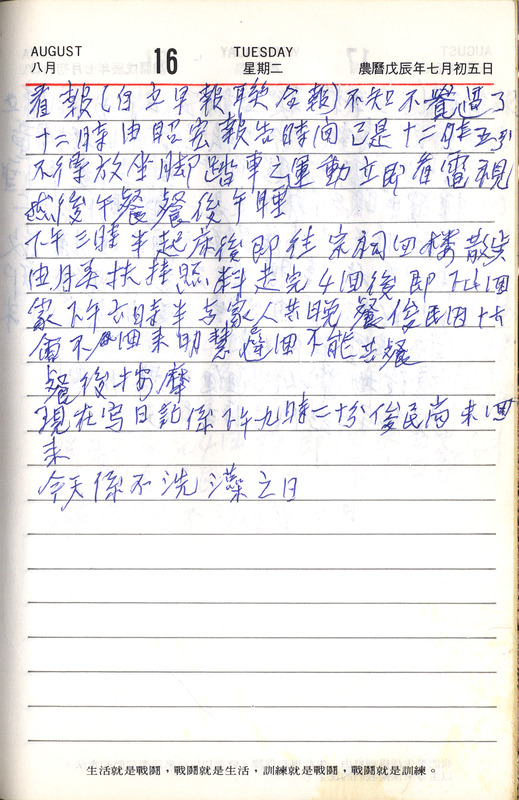 AUGUST 16 TUESDAY
八月 星期二 農曆戊辰年七月初五日
看報(自立早報聯合報)不知不覺過了
十二時由昭宏報告時间已是十二時五分
不得放坐脚踏車之運動立即看電視
然後午餐餐後午睡
下午三時半起床後即往宗祠四楼散步
由月英扶持照料走完4回後即下4回
家下午六時半与家人共晚餐俊民因十六
不回來助慧 回不能共餐
餐後按摩
現在写日記係下午九時二十分俊民尚未回
来
今天係不洗澡之日
生活就是戰鬪，戰鬪就是生活，訓練就是戰鬪，戰鬪就是訓練。